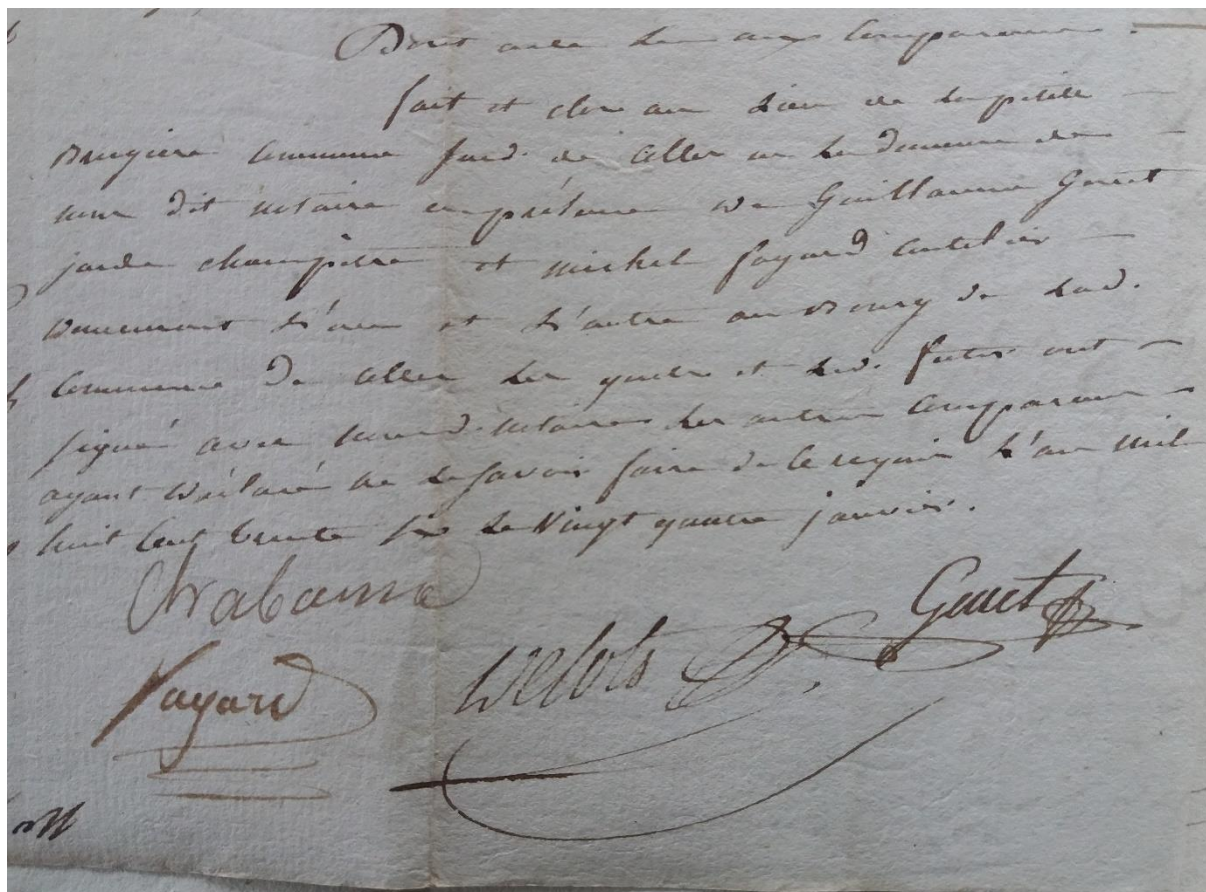 Dont acte lu aux comparans.
fait et clos au lieu de la petite
Brugiere commune sud. de celler en la demeure de
nous dit notaire en présence de Guillaume Genet
garde champetre et michel fayard cultivateur
demeurant l'un et l'autre au Bourg de lad.
commune de celler les quels et led. futur ont
signé avec nous d. notaire les autres comparans
ayant déclaré ne le savoir faire de ce requis l'an mil
huit cent trente six le vingt quatre janvier.
Chabanne
Genet
fayard